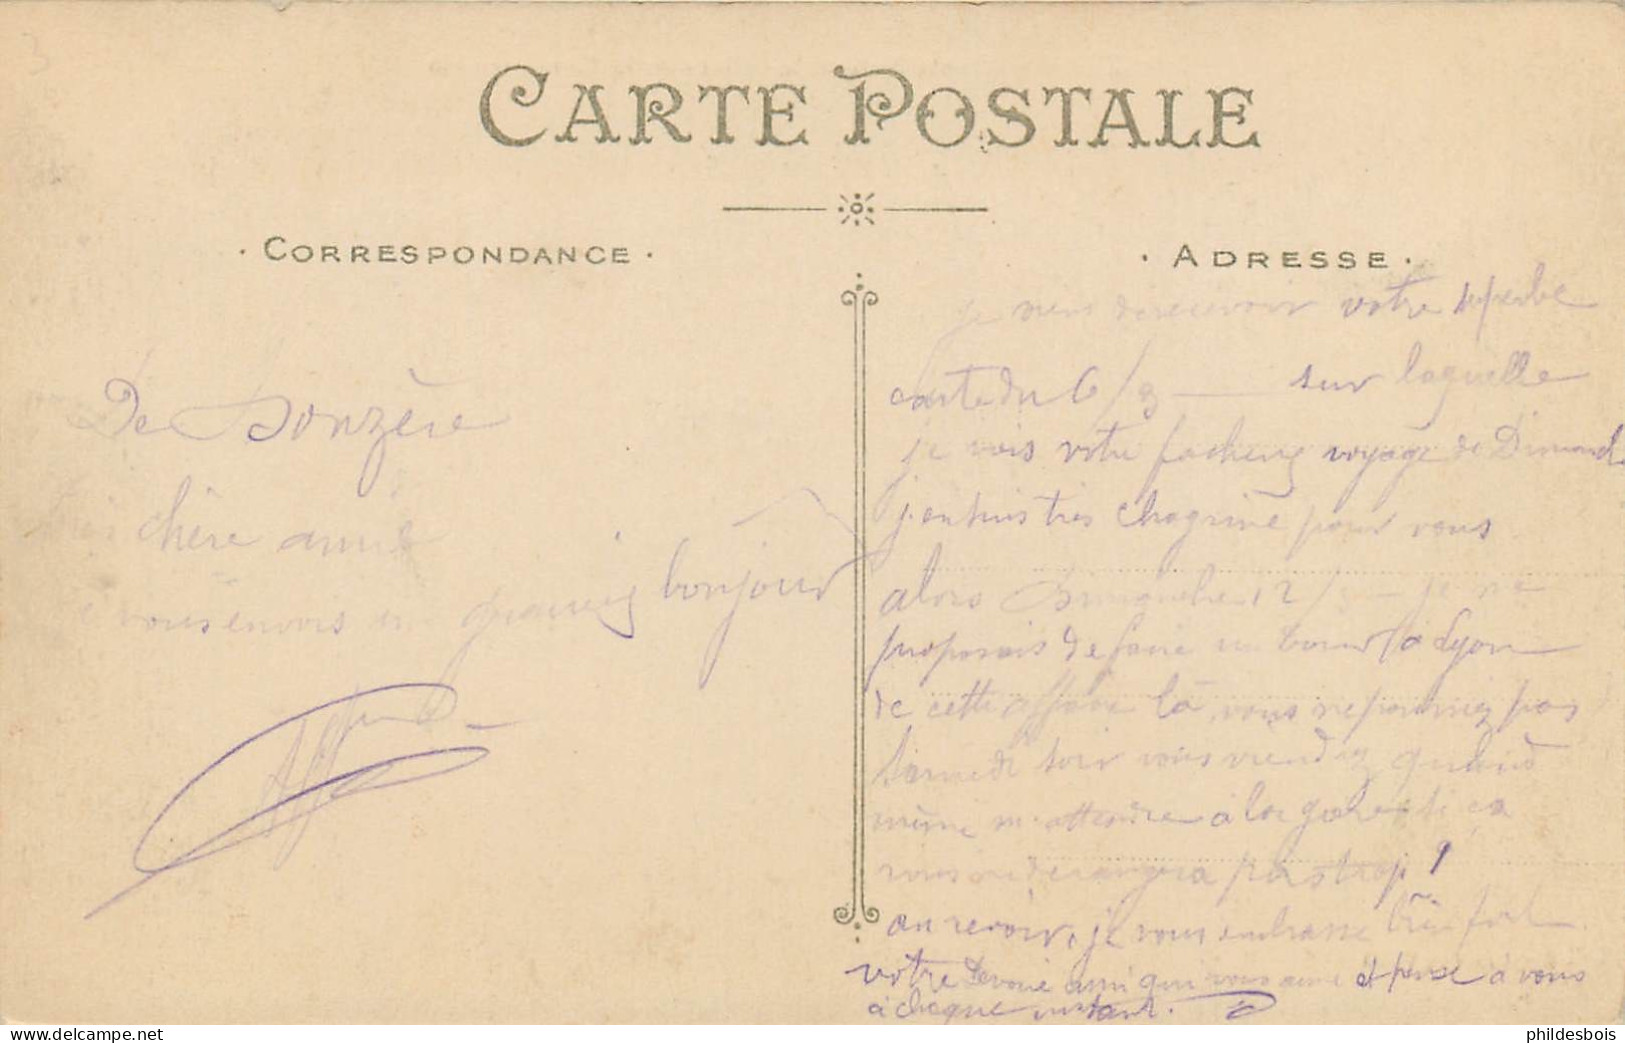 CARTE POSTALE
· CORRESPONDANCE ·
· ADRESSE ·
De Donzère
chère amie
vous envois un grand bonjour
je viens de recevoir votre superbe
carte du 6/3 — sur laquelle
je vois votre facheux voyage de Dimanch
j'en suis tres chagriné pour vous
alors Dimanche 12/ — je me
proposais de faire un tour à Lyon
de cette affaire là, vous ne pourriez pas
Samedi soir vous viendrez quand
même m'attendre à la gare si ça
vous derangera pas trop !
au revoir, je vous embrasse très fort
votre devoué ami qui vous aime et pense à vous
à chaque instant.
phildesbois